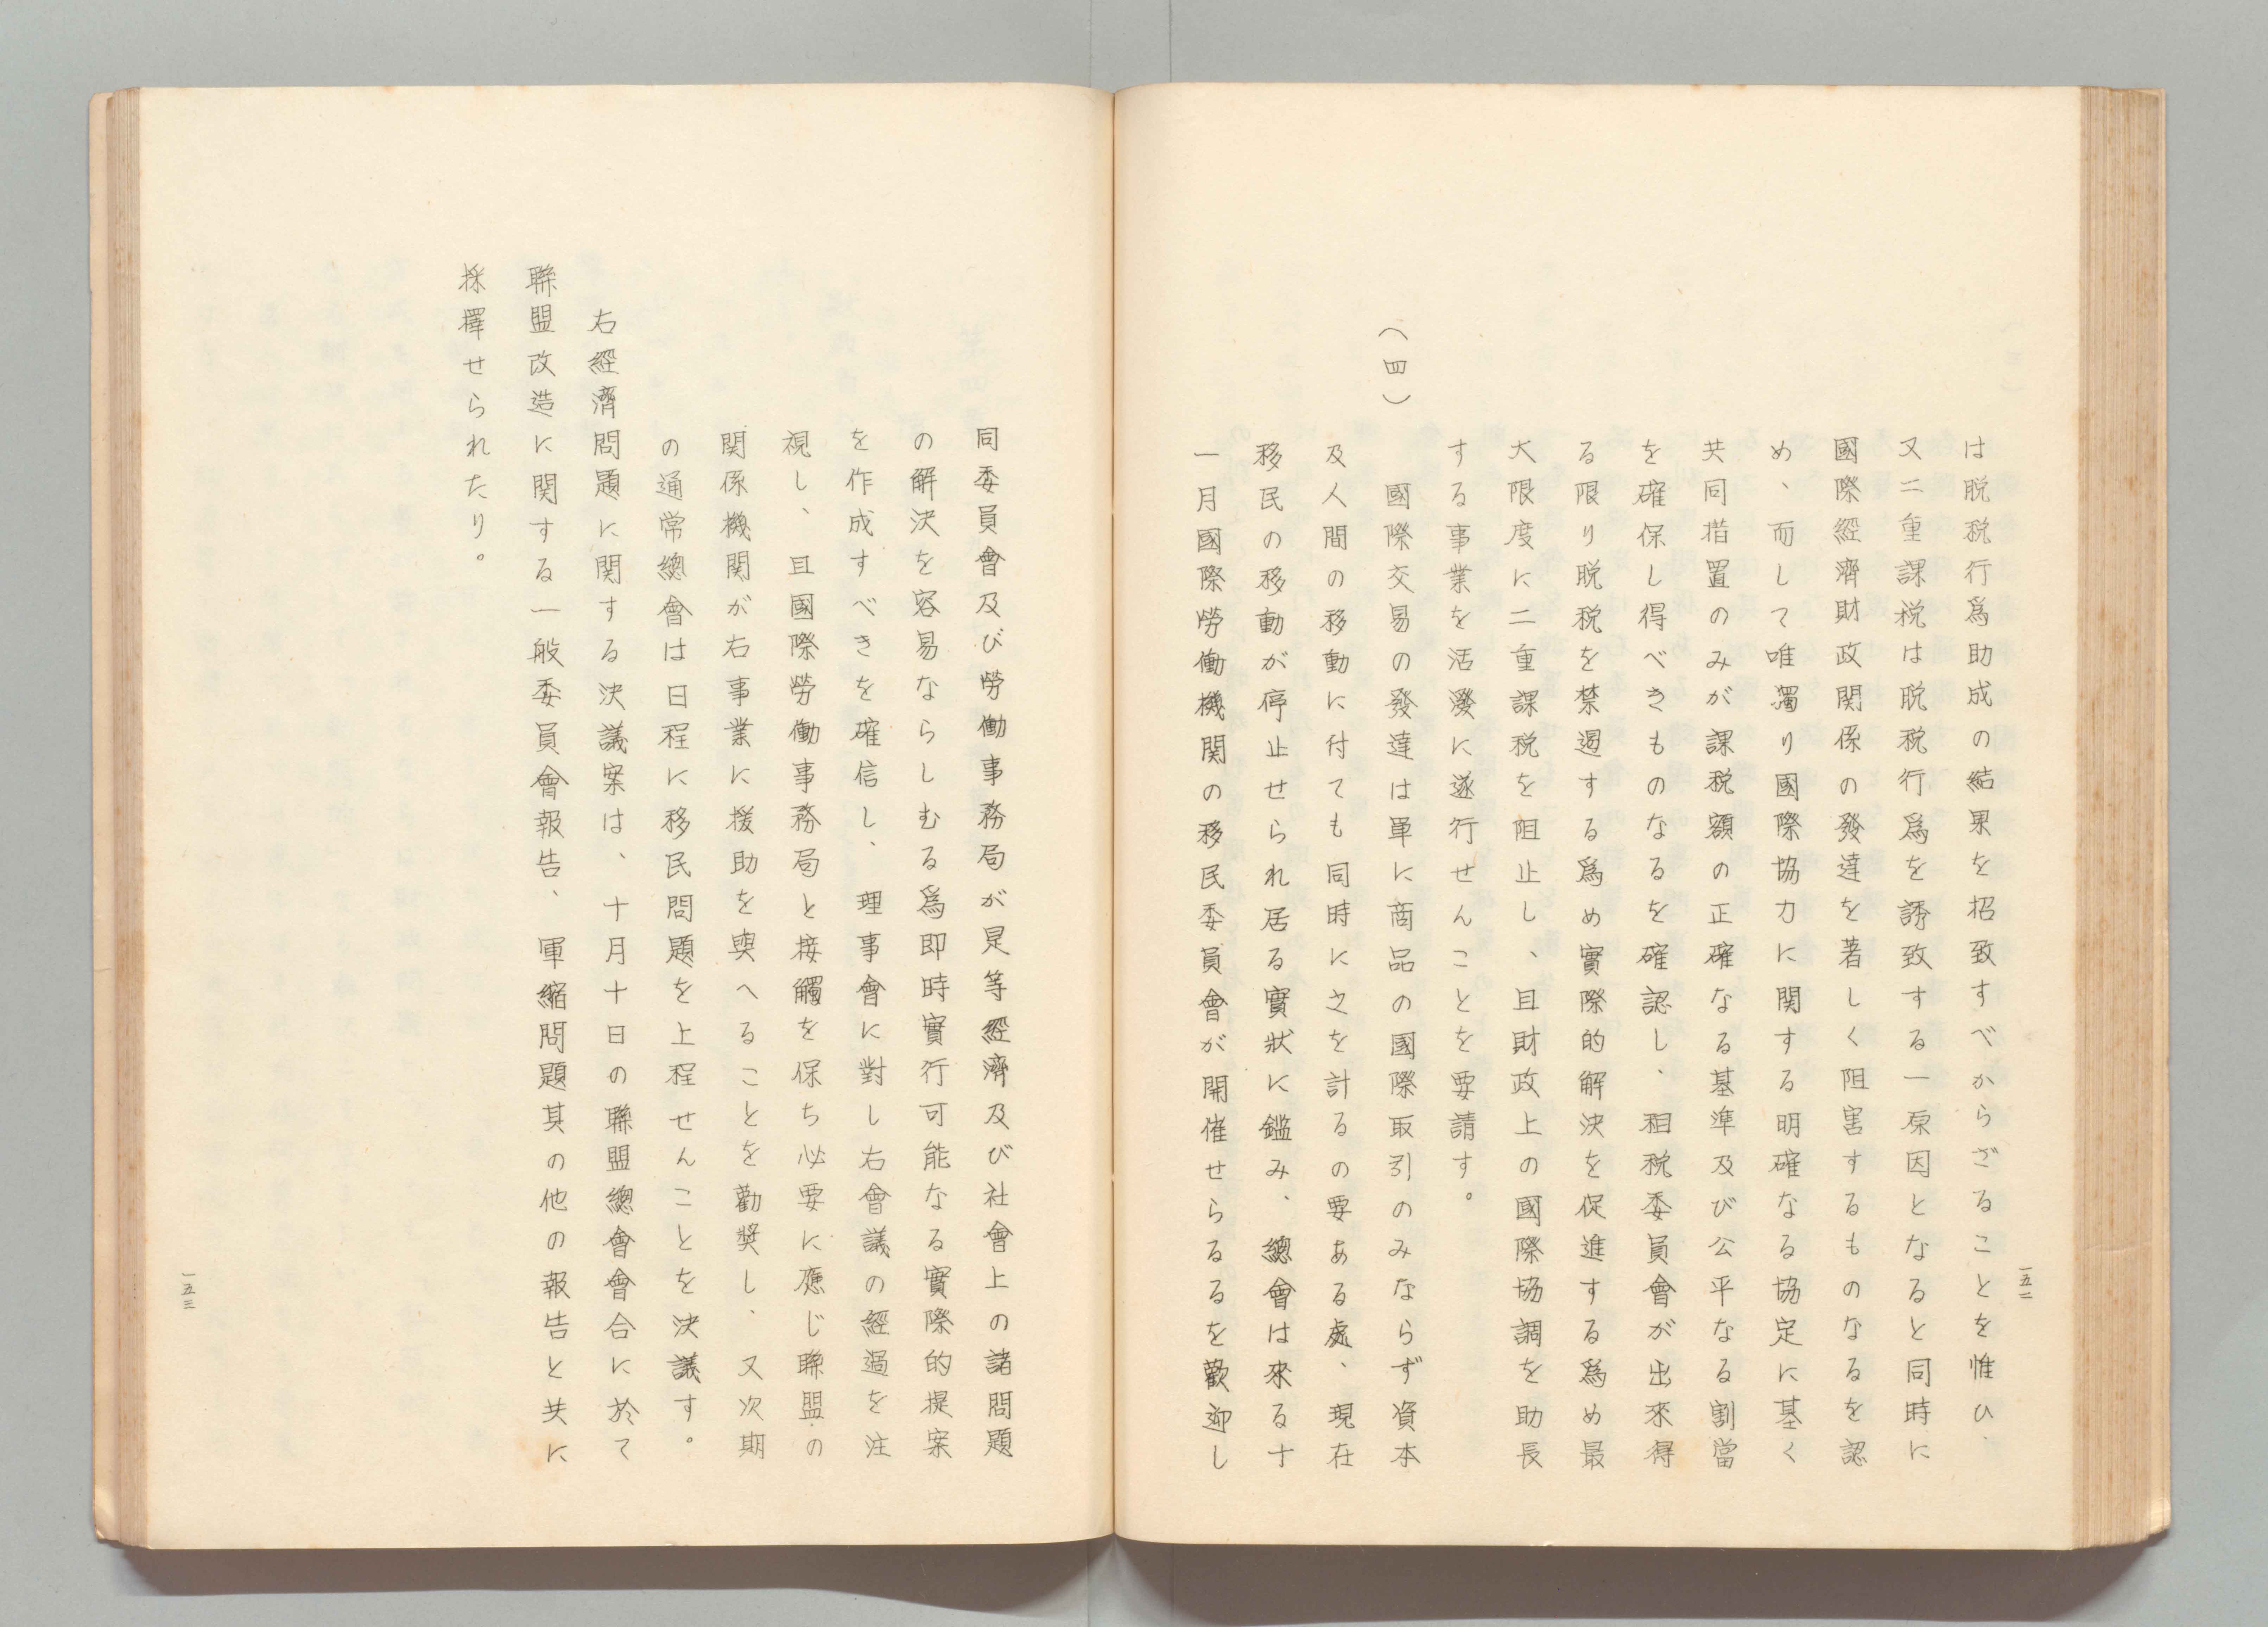 は脱税行爲助成の結果を招致すべからざることを惟ひ、
又二重課税は脱税行爲を誘致する一原因となると同時に
國際經濟財政関係の發達を著しく阻害するものなるを認
め、而して唯獨り國際協力に関する明確なる協定に基く
共同措置のみが課税額の正確なる基準及び公平なる割當
を確保し得べきものなるを確認し、租税委員會が出來得
る限り脱税を禁遏する爲め實際的解決を促進する爲め最
大限度に二重課税を阻止し、且財政上の國際協調を助長
する事業を活潑に遂行せんことを要請す。
(四)
國際交易の發達は單に商品の國際取引のみならず資本
及人間の移動に付ても同時に之を計るの要ある處、現在
移民の移動が停止せられ居る實狀に鑑み、總會は來る十
一月國際勞働機関の移民委員會が開催せらるるを歡迎し
一五二
同委員會及び勞働事務局が是等經濟及び社會上の諸問題
の解決を容易ならしむる爲即時實行可能なる實際的提案
を作成すべきを確信し、理事會に對し右會議の經過を注
視し、且國際勞働事務局と接觸を保ち必要に應じ聯盟の
関係機関が右事業に援助を與へることを勸奬し、又次期
の通常總會は日程に移民問題を上程せんことを決議す。
右經濟問題に関する決議案は、十月十日の聯盟總會會合に於て
聯盟改造に関する一般委員會報告、軍縮問題其の他の報告と共に
採擇せられたり。
一五三